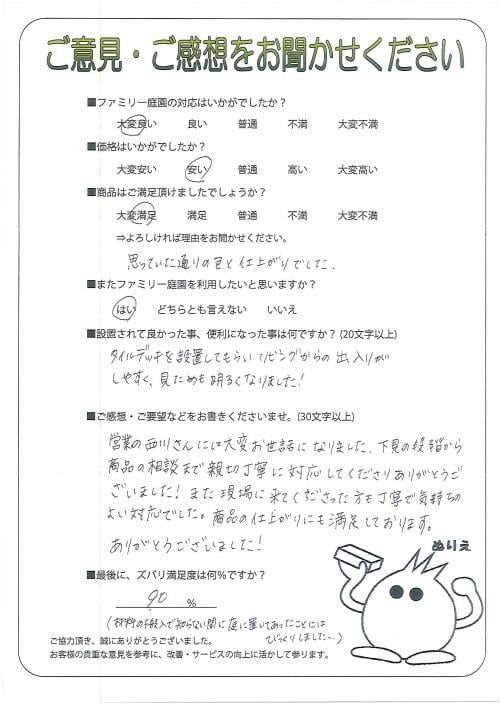 ご意見・ご感想をお聞かせください
■ファミリー庭園の対応はいかがでしたか？
大変良い 良い 普通 不満 大変不満
■価格はいかがでしたか？
大変安い 安い 普通 高い 大変高い
■商品はご満足頂けましたでしょうか？
大変満足 満足 普通 不満 大変不満
⇒よろしければ理由をお聞かせください。
思っていた通りの色と仕上がりでした。
■またファミリー庭園を利用したいと思いますか？
はい どちらとも言えない いいえ
■設置されて良かった事、便利になった事は何ですか？(20文字以上)
タイルデッキを設置してもらいリビングからの出入りが
しやすく、見ためも明るくなりました！
■ご感想・ご要望などをお書きくださいませ。(30文字以上)
営業の西川さんには大変お世話になりました。下見の段階から
商品の相談まで親切丁寧に対応してくださりありがとうご
ざいました！また現場に来てくださった方も丁寧で気持ちの
よい対応でした。商品の仕上がりにも満足しております。
ありがとうございました！
ぬりえ
■最後に、ズバリ満足度は何％ですか？
90 %
(材料の搬入で知らない間に庭に置いてあったことには
びっくりしました〜)
ご協力頂き、誠にありがとうございました。
お客様の貴重な意見を参考に、改善・サービスの向上に活かして参ります。